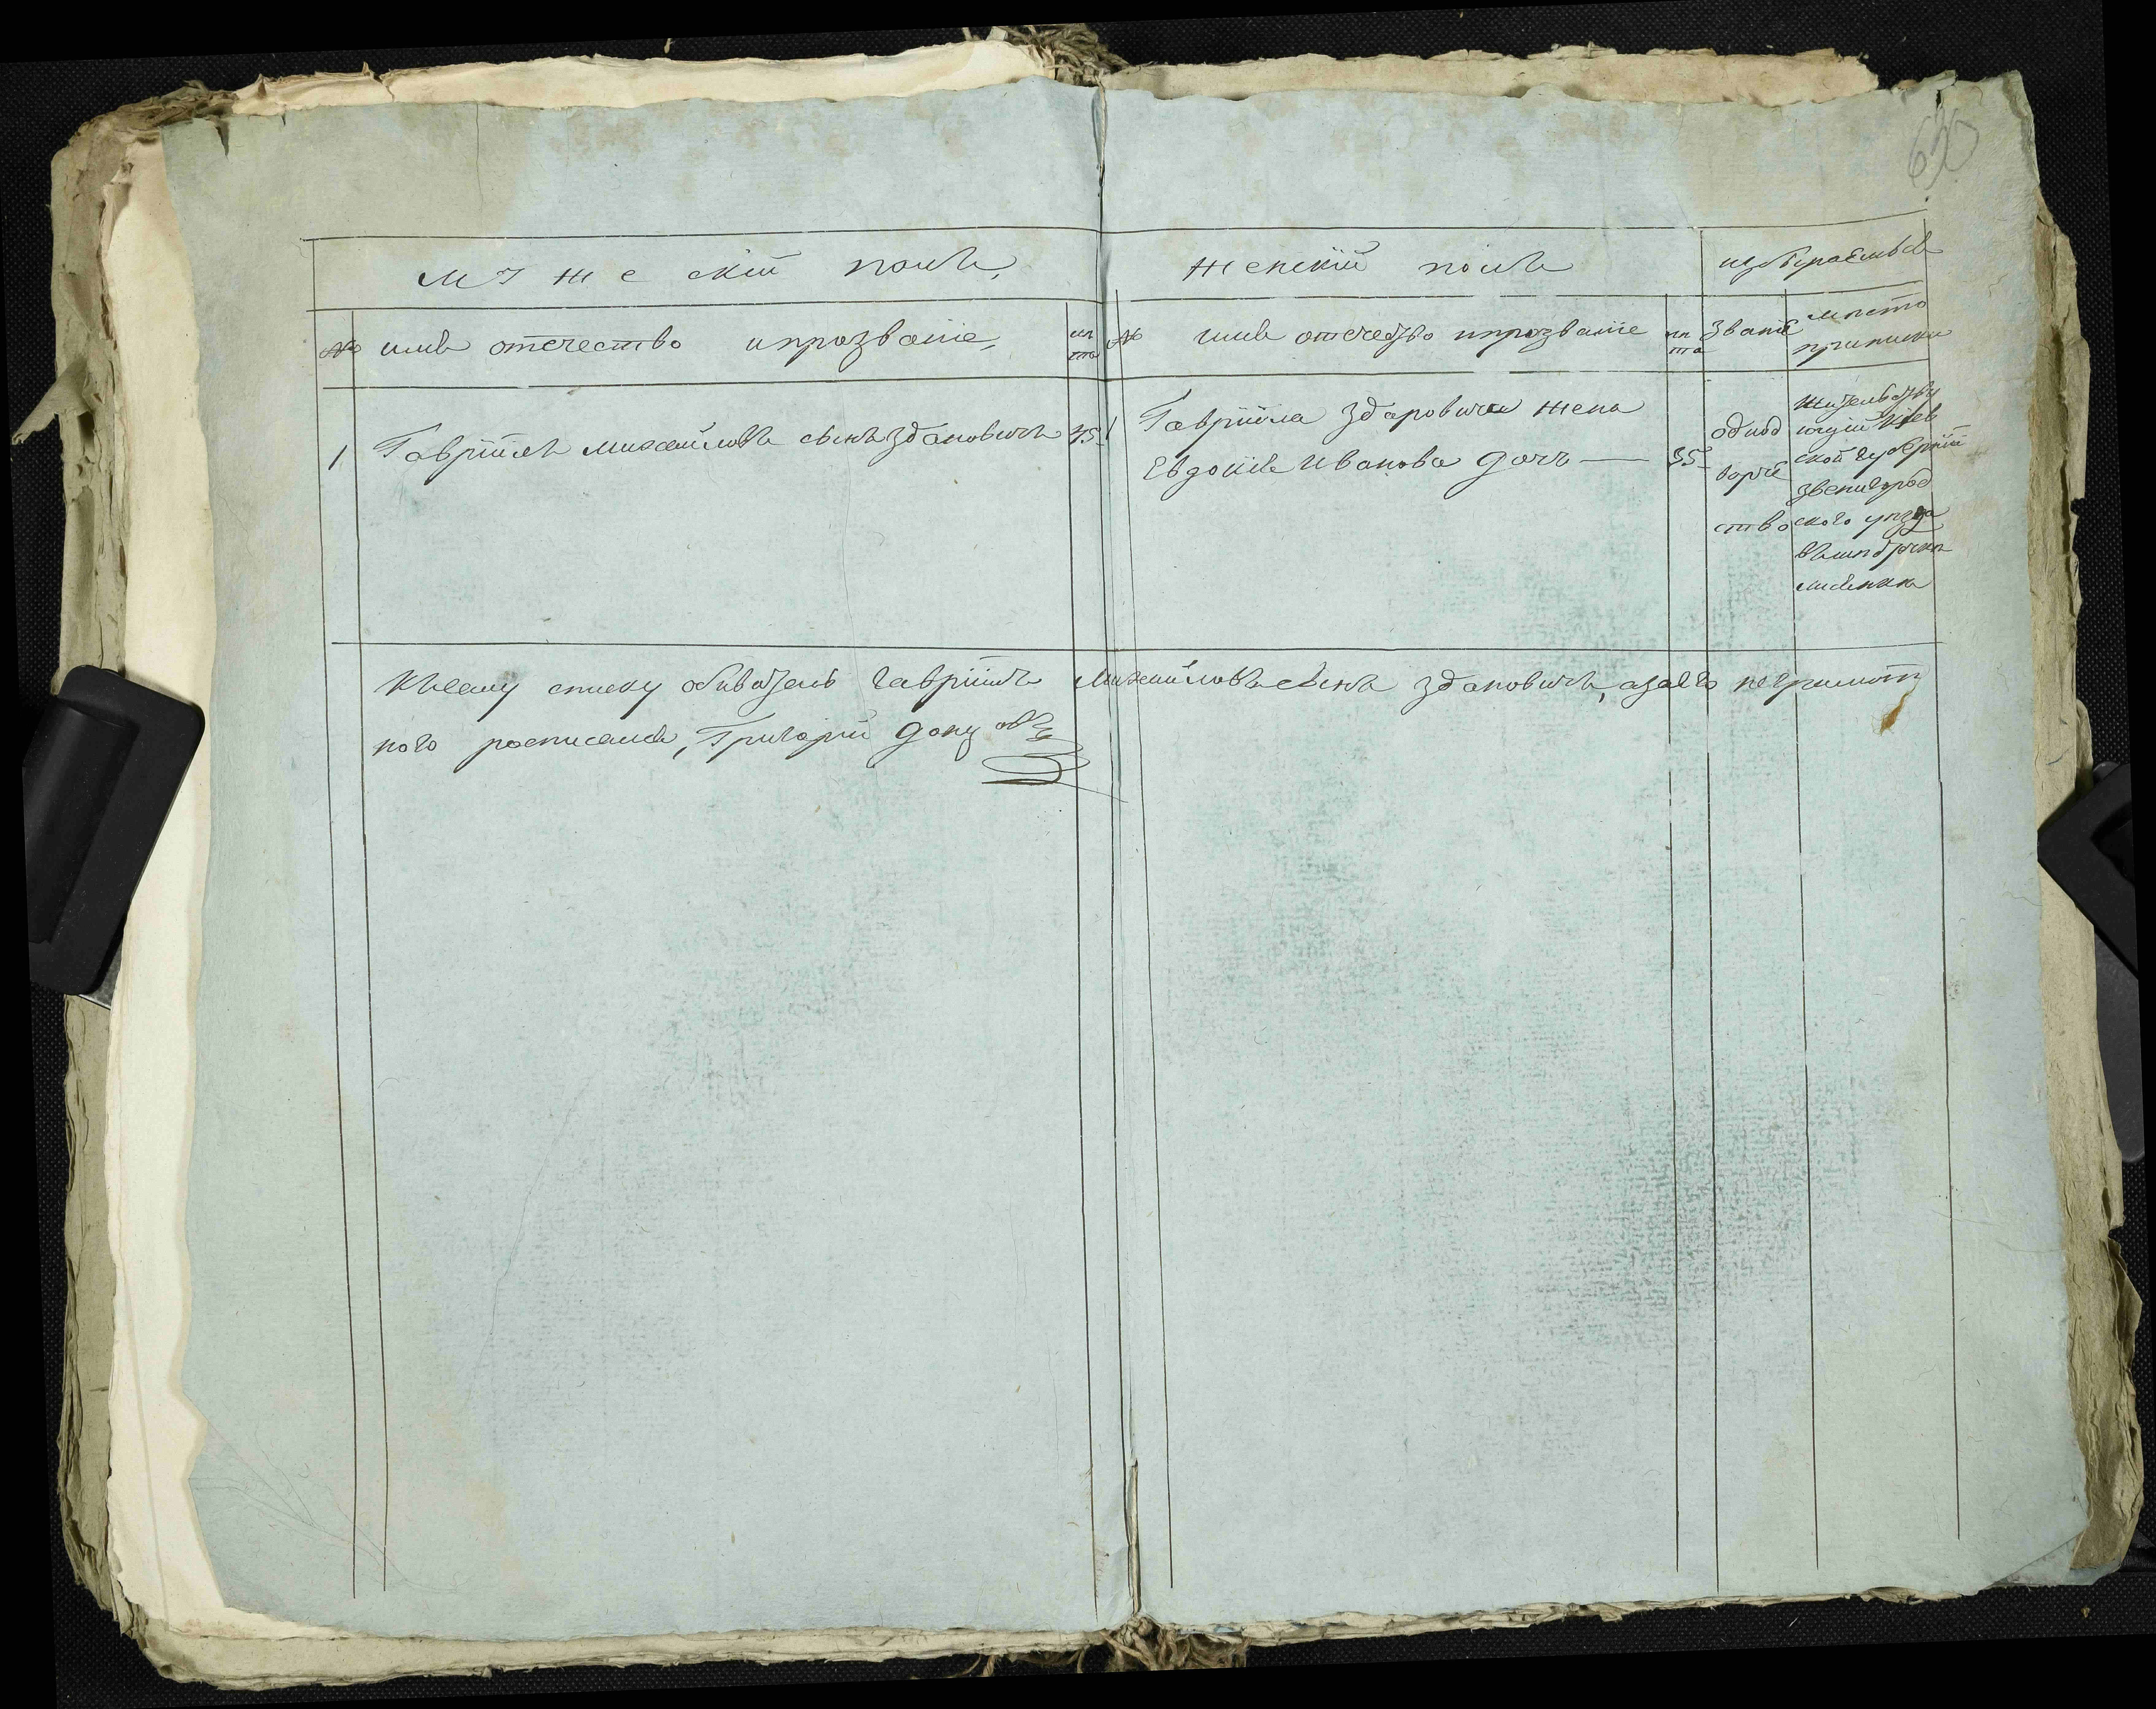 650
мужескій полъ,
женскій полъ
избираемыя
№ имя отечество ипрозваніе,
лѣта
№ имя отечество ипрозваніе
лѣта
званіе
место
приписки
1 Гавріилъ михайловъ сынъ здановичъ 45
1 Гавріила здановича жена
Евдокія Иванова дочъ — 35
однод
ворче
ство
жительству
ющій Кіев
ской губерніи
звенигород
ского уѣзда
въмѣстѣчкѣ
лисянкѣ
Късему списку обыватель гавріилъ Михайловъ сынъ здановичъ, азаего неграмот
ного росписался, Григорій донцовъ